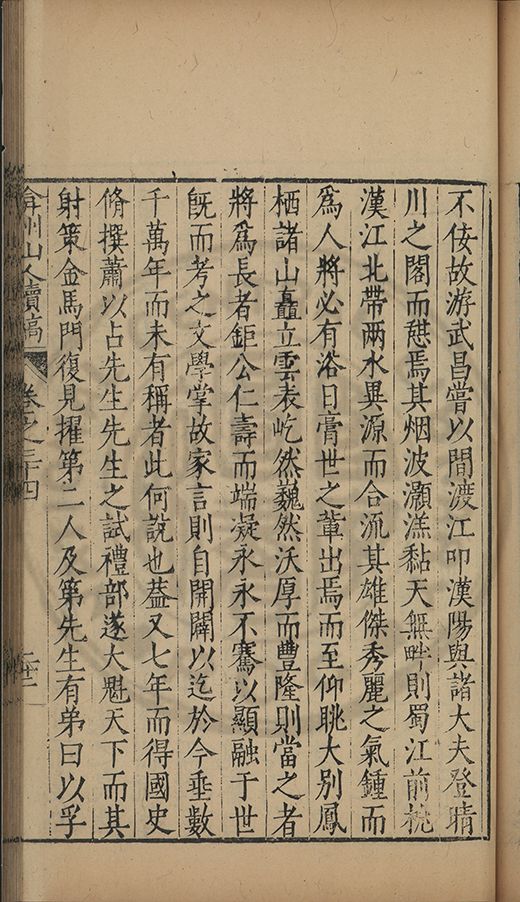 不佞故游武昌嘗以間渡江叩漢陽與諸大夫登晴
川之閣而憇焉其烟波灝溔黏天無畔則蜀江前桄
漢江北帶兩水異源而合流其雄傑秀麗之氣鍾而
爲人將必有浴日膏世之軰出焉而至仰眺大别鳳
栖諸山矗立雲表屹然巍然沃厚而豐隆則當之者
將爲長者鉅公仁壽而端凝永永不騫以顯融于世
旣而考之文學掌故家言則自開闢以迄於今垂數
千萬年而未有稱者此何說也葢又七年而得國史
脩撰蕭以占先生先生之試禮部遂大魁天下而其
射策金馬門復見擢第二人及第先生有弟曰以孚
弇州山人續稿 卷之三十四 二十二